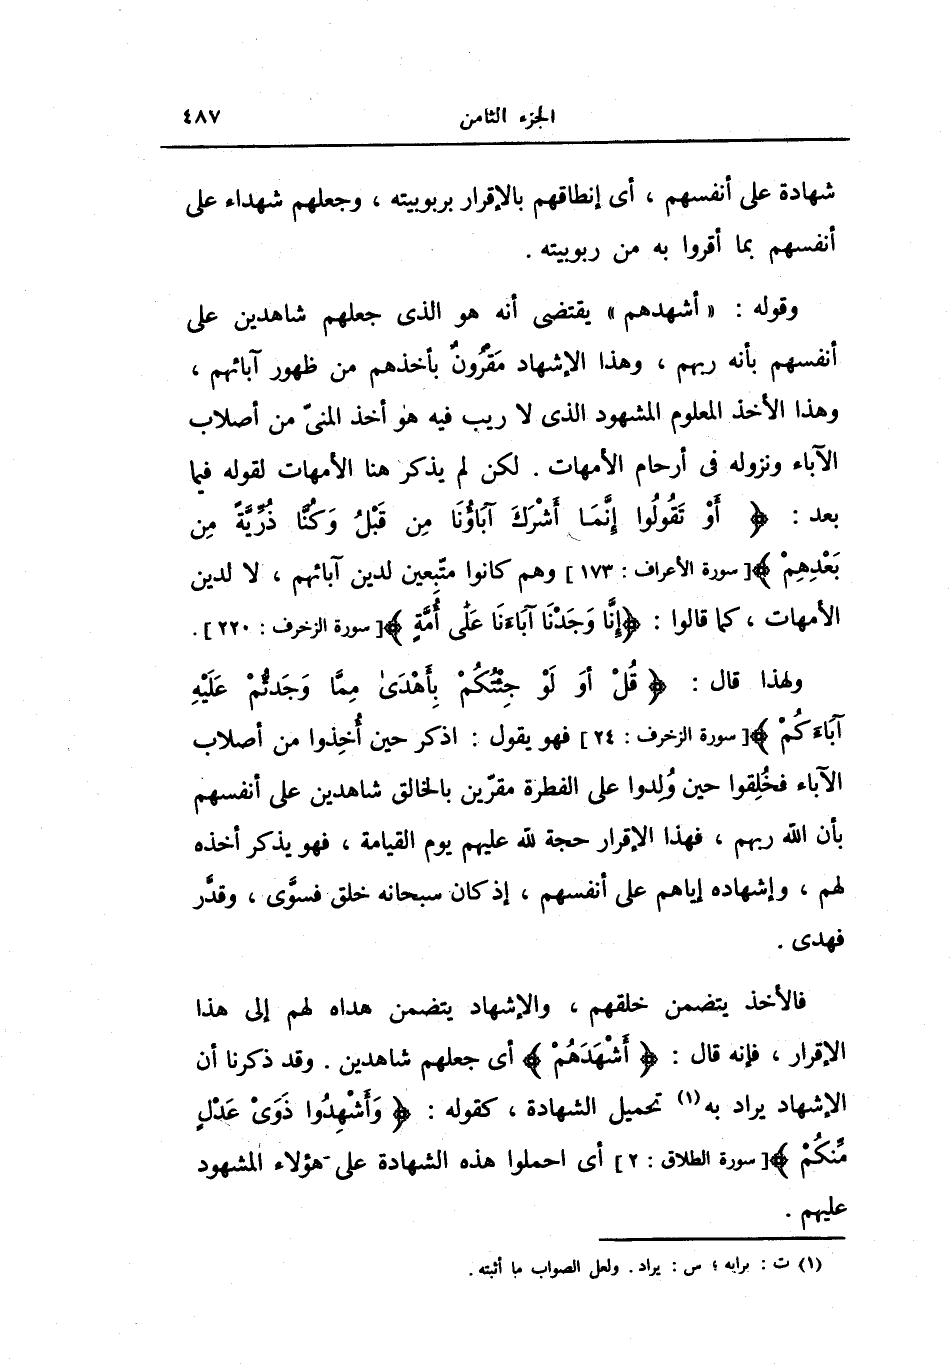 الجزء الثامن ٤٨٧
شهادة على أنفسهم ، أى إنطاقهم بالإقرار بربوبيته ، وجعلهم شهداء على
أنفسهم بما أقروا به من ربوبيته .
وقوله : « أشهدهم » يقتضى أنه هو الذى جعلهم شاهدين على
أنفسهم بأنه ربهم ، وهذا الإشهاد مَقْرُونٌ بأخذهم من ظهور آبائهم ،
وهذا الأخذ المعلوم المشهود الذى لا ريب فيه هو أخذ المنىّ من أصلاب
الآباء ونزوله فى أرحام الأمهات . لكن لم يذكر هنا الأمهات لقوله فيما
بعد : ﴿ أَوْ تَقُولُوا إِنَّمَا أَشْرَكَ آبَاؤُنَا مِن قَبْلُ وَكُنَّا ذُرِّيَّةً مِن
بَعْدِهِمْ ﴾[ سورة الأعراف : ١٧٣ ] وهم كانوا متّبِعين لدين آبائهم ، لا لدين
الأمهات ، كما قالوا : ﴿إِنَّا وَجَدْنَا آبَاءَنَا عَلَى أُمَّةٍ ﴾[ سورة الزخرف : ٢٢٠ ] .
ولهذا قال : ﴿ قُلْ أَوَ لَوْ جِئْتُكُمْ بِأَهْدَىٰ مِمَّا وَجَدتُّمْ عَلَيْهِ
آبَاءَكُمْ ﴾[ سورة الزخرف : ٢٤ ] فهو يقول : اذكر حين أُخِذوا من أصلاب
الآباء فخُلِقوا حين وُلِدوا على الفطرة مقرّين بالخالق شاهدين على أنفسهم
بأن الله ربهم ، فهذا الإقرار حجة لله عليهم يوم القيامة ، فهو يذكر أخذه
لهم ، وإشهاده إياهم على أنفسهم ، إذ كان سبحانه خلق فسوَّى ، وقدَّر
فهدى .
فالأخذ يتضمن خلقهم ، والإشهاد يتضمن هداه لهم إلى هذا
الإقرار ، فإنه قال : ﴿ أَشْهَدَهُمْ ﴾ أى جعلهم شاهدين . وقد ذكرنا أن
الإشهاد يراد به(١) تحميل الشهادة ، كقوله : ﴿ وَأَشْهِدُوا ذَوَىْ عَدْلٍ
مِّنكُمْ ﴾[ سورة الطلاق : ٢ ] أى احملوا هذه الشهادة على هؤلاء المشهود
عليهم .
(١) ت : برابه ؛ س : يراد . ولعل الصواب ما أثبته .